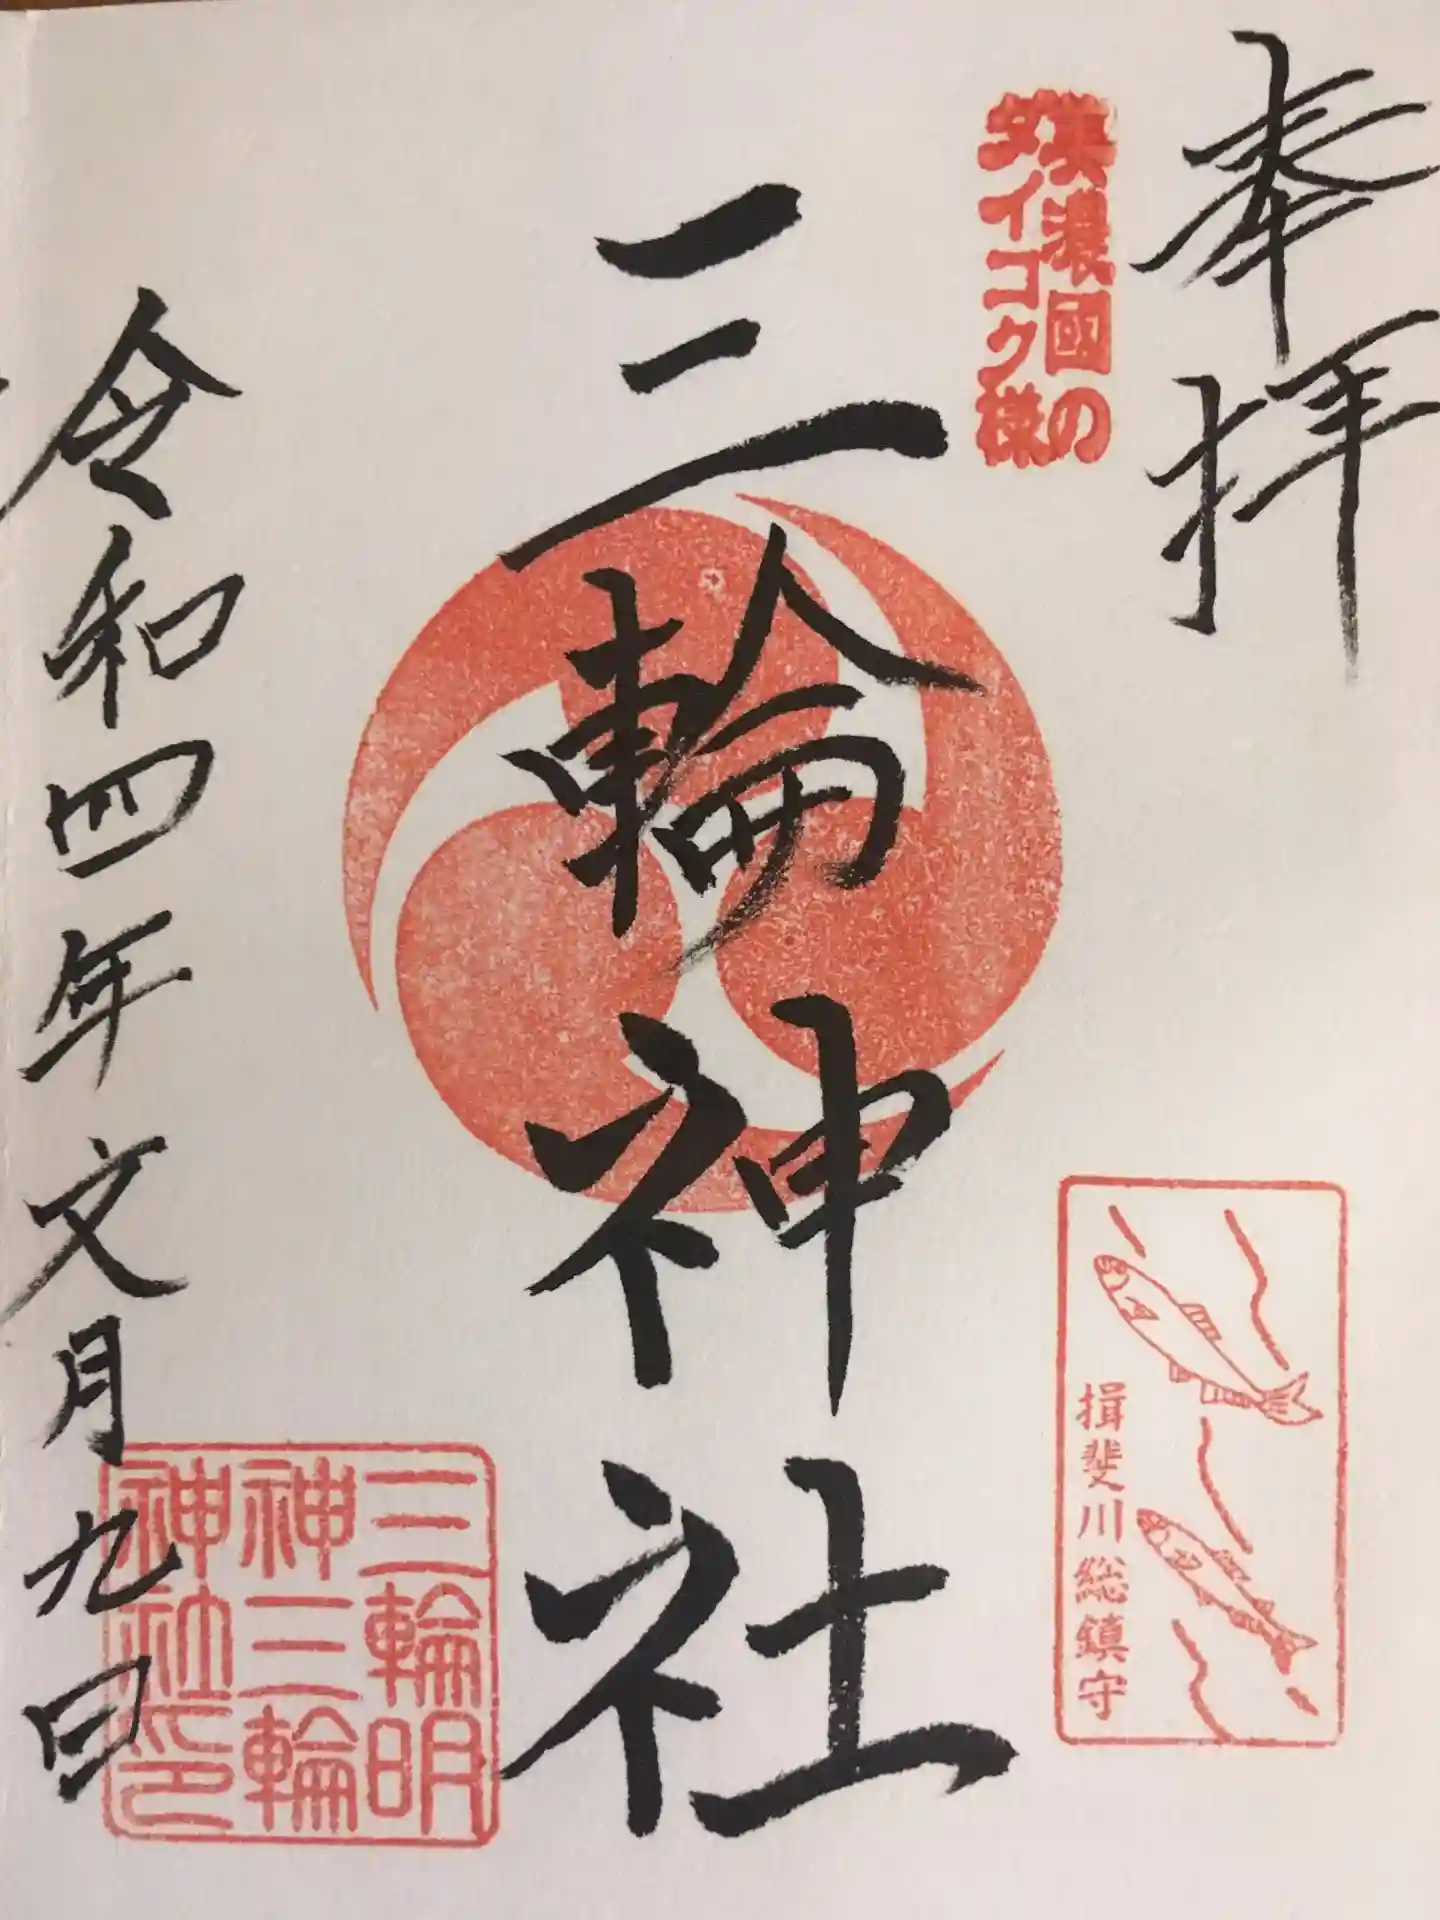 奉拝
美濃國の
ダイコク様
三輪神社
揖斐川総鎮守
三輪明
神三輪
神社印
令和四年文月九日